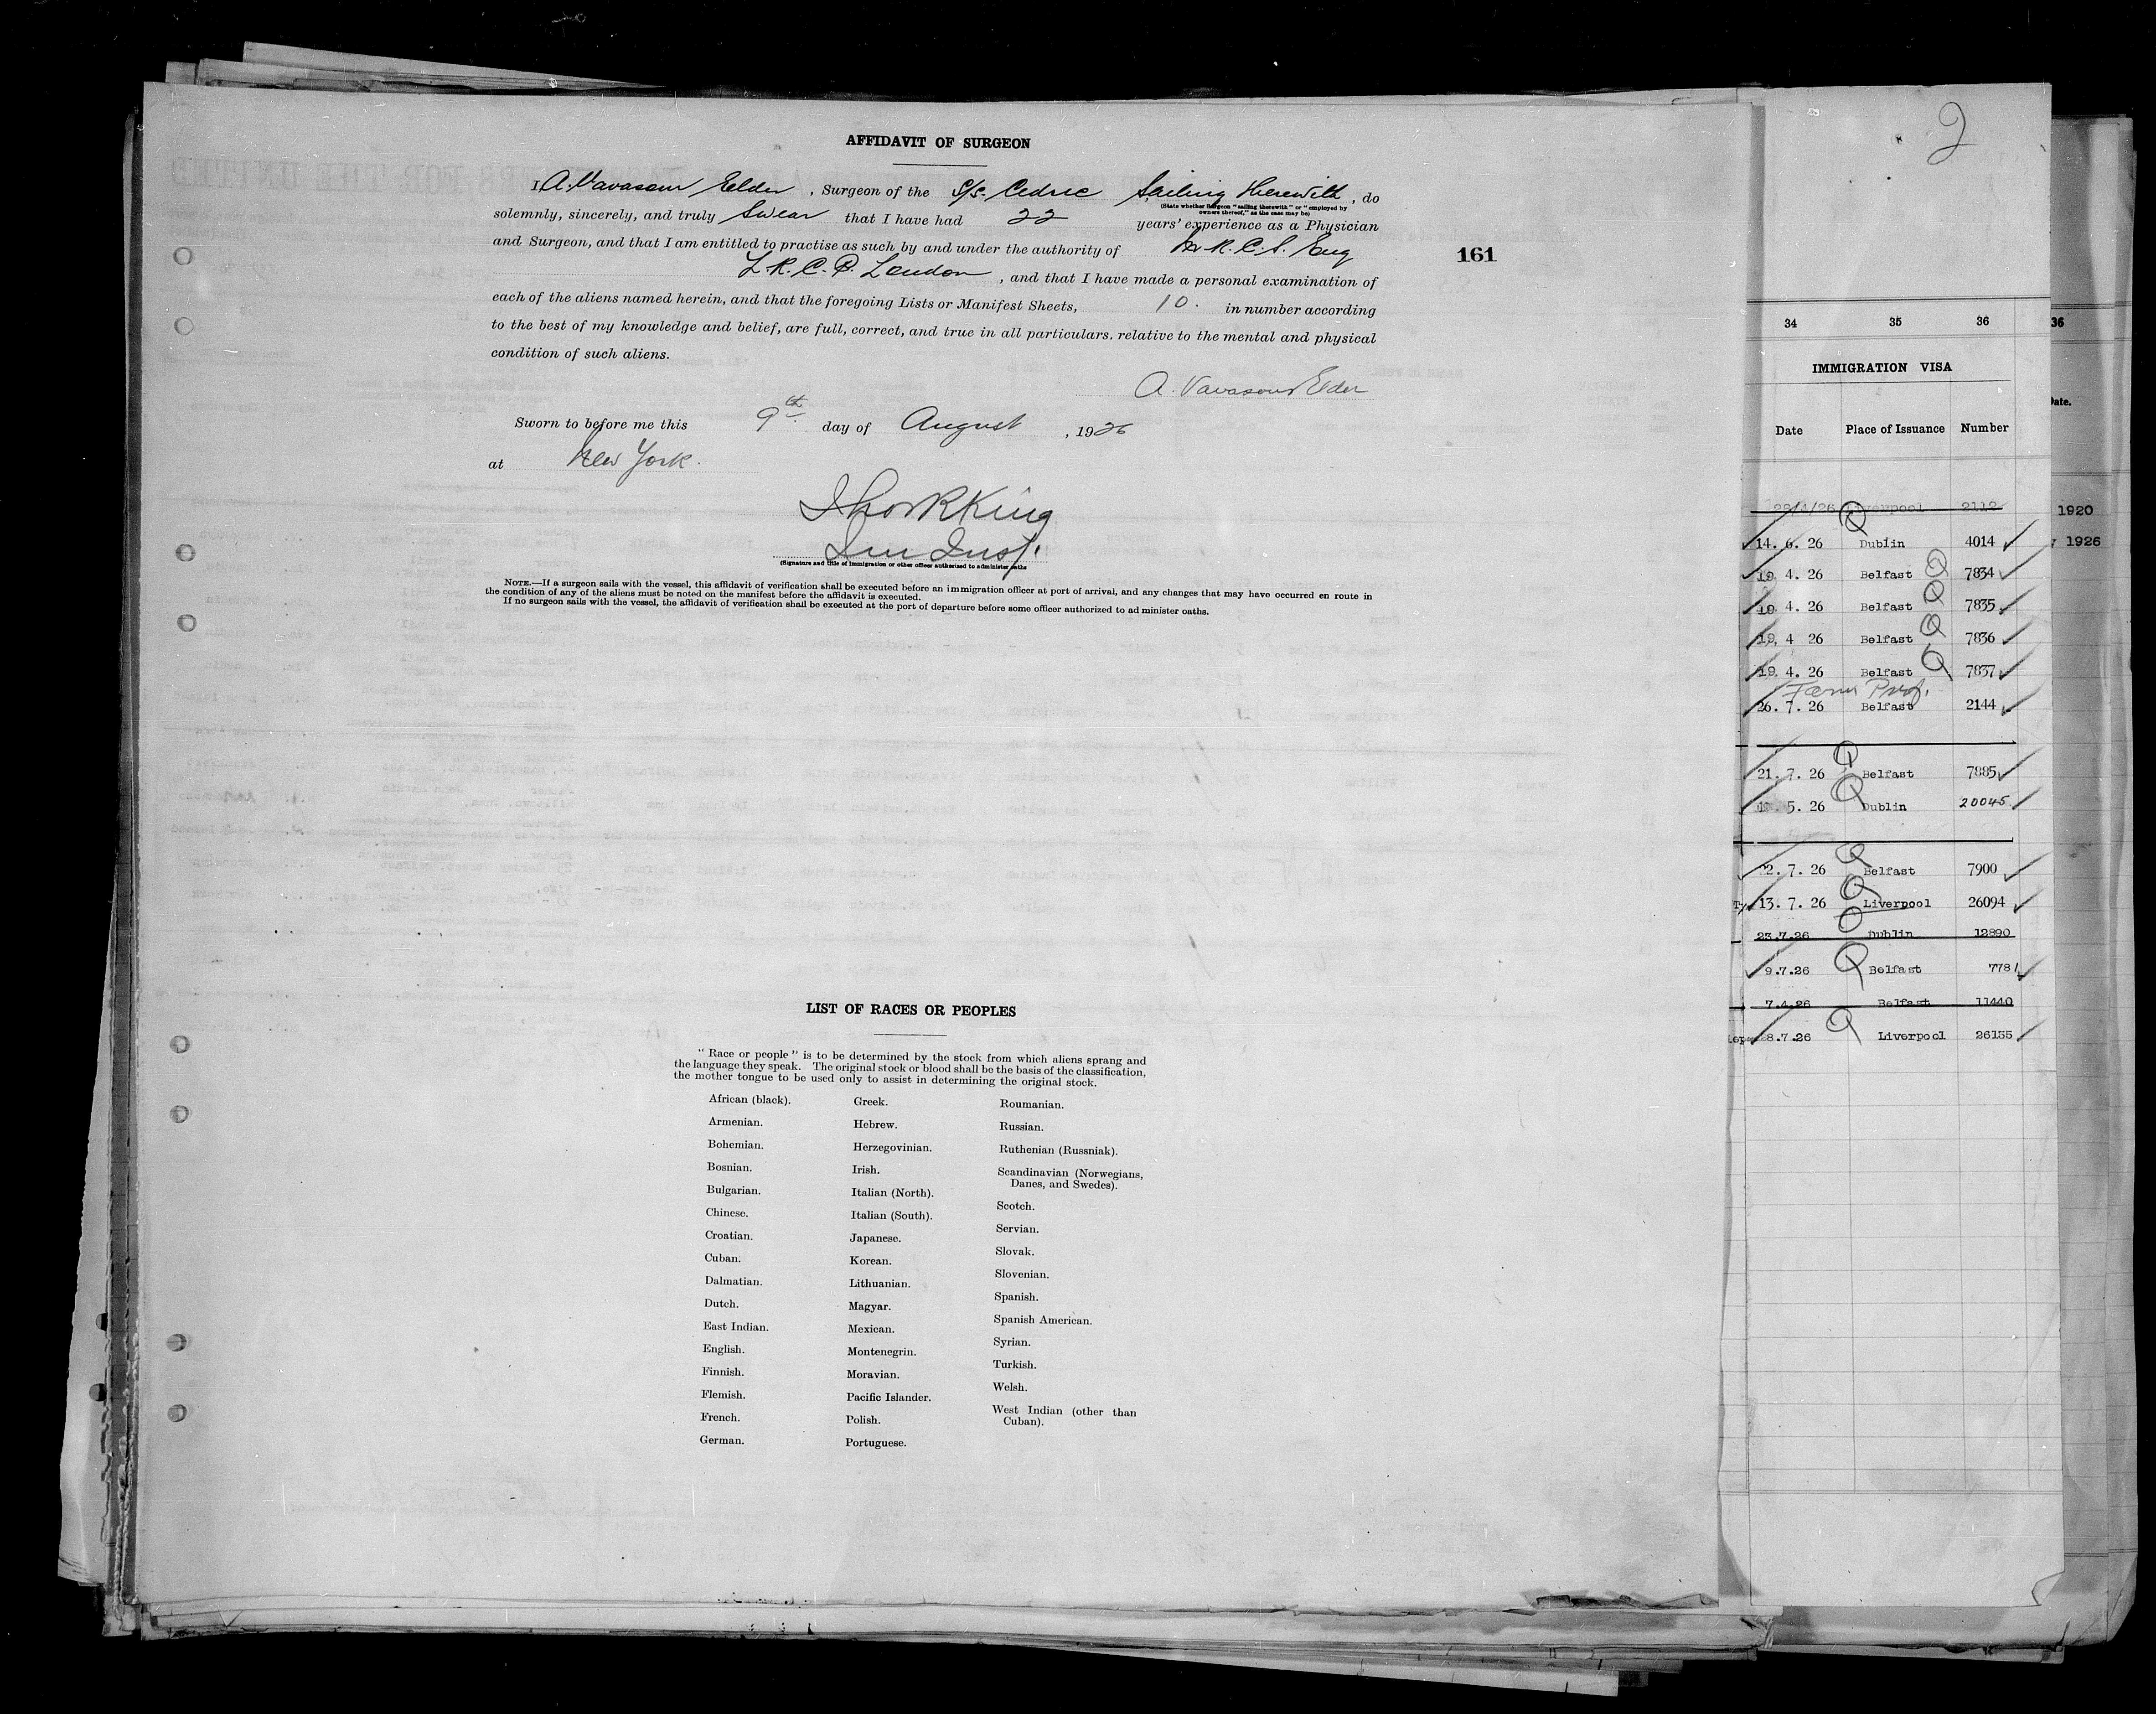 AFFIDAVIT OF SURGEON
I A. Vavasour Elder, Surgeon of the S/S. Cedric Sailing Herewith, do
(State whether Surgeon "sailing therewith" or "employed by
owners thereof," as the case may be)
solemnly, sincerely, and truly Swear that I have had 22 years' experience as a Physician
and Surgeon, and that I am entitled to practise as such by and under the authority of M.R.C.S. Eng
L.R.C.P. London, and that I have made a personal examination of
each of the aliens named herein, and that the foregoing Lists or Manifest Sheets, 10. in number according
to the best of my knowledge and belief, are full, correct, and true in all particulars. relative to the mental and physical
condition of such aliens.
A. Vavasour Elder
Sworn to before me this 9th day of August, 1926
at New York.
King
Im Insp.
(Signature and title of immigration or other officer authorized to administer oaths
NOTE.—If a surgeon sails with the vessel, this affidavit of verification shall be executed before an immigration officer at port of arrival, and any changes that may have occurred en route in
the condition of any of the aliens must be noted on the manifest before the affidavit is executed.
If no surgeon sails with the vessel, the affidavit of verification shall be executed at the port of departure before some officer authorized to ad minister oaths.
161
LIST OF RACES OR PEOPLES
"Race or people" is to be determined by the stock from which aliens sprang and
the language they speak. The original stock or blood shall be the basis of the classification,
the mother tongue to be used only to assist in determining the original stock.
African (black).
Armenian.
Bohemian.
Bosnian.
Bulgarian.
Chinese.
Croatian.
Cuban.
Dalmatian.
Dutch.
East Indian.
English.
Finnish.
Flemish.
French.
German.
Greek.
Hebrew.
Herzegovinian.
Irish.
Italian (North).
Italian (South).
Japanese.
Korean.
Lithuanian.
Magyar.
Mexican.
Montenegrin.
Moravian.
Pacific Islander.
Polish.
Portuguese.
Roumanian.
Russian.
Ruthenian (Russniak).
Scandinavian (Norwegians,
Danes, and Swedes).
Scotch.
Servian.
Slovak.
Slovenian.
Spanish.
Spanish American.
Syrian.
Turkish.
Welsh.
West Indian (other than
Cuban).
2
34 35 36
IMMIGRATION VISA
Date Place of Issuance Number
29/4/26 Liverpool 2112
14. 6. 26 Dublin 4014
19 4. 26 Belfast Q 7834
19 4. 26 Belfast Q 7835
19. 4 26 Belfast Q 7836
19. 4. 26 Belfast Q 7837
Farm Pref.
26. 7. 26 Belfast 2144
21. 7. 26 Q Belfast 7885
5. 26 Q Dublin 20045
22. 7. 26 Q Belfast 7900
13. 7. 26 Q Liverpool 26094
23.7.26 Q Dublin 12890
9.7.26 Q Belfast 7781
7.4.26 Belfast 11440
8.7.26 Q Liverpool 26135
36
Date.
1920
1926